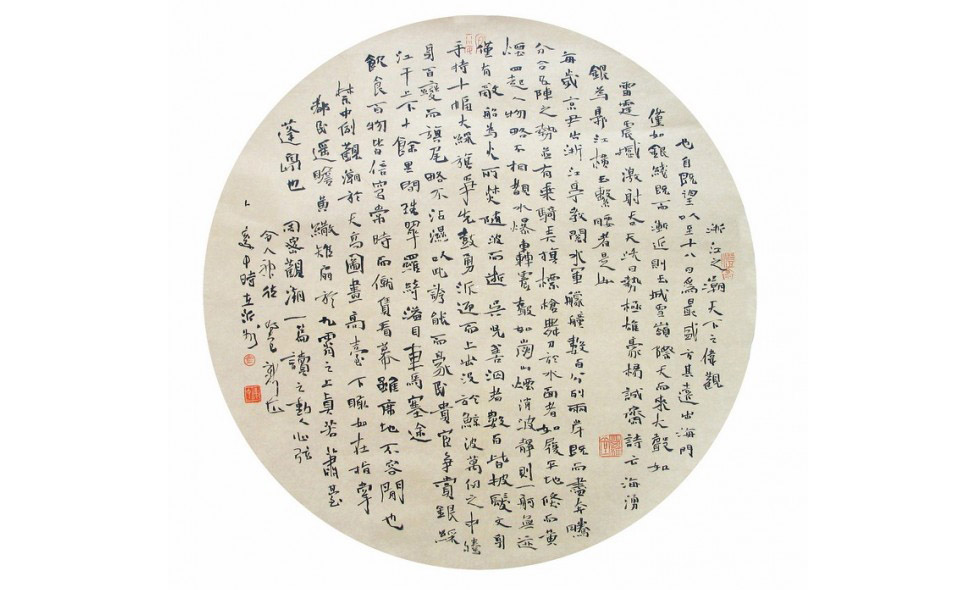 浙江之潮天下之偉觀
也自既望以至十八日為最盛方其遠出海門
僅如銀綫既而漸近則玉城雪嶺際天而來大聲如
雷霆震撼激射吞天沃日勢極雄豪楊誠齋詩云海湧
銀為郭江橫玉繫腰者是也
每歲京尹出浙江亭教閱水軍艨艟數百分列兩岸既而盡奔騰
分合五陣之勢並有乘騎弄旗標槍舞刀於水面者如履平地倏而黃
煙四起人物略不相覩水爆轟震聲如崩山煙消波靜則一舸無迹
僅有敵船為火所焚隨波而逝吳兒善泅者數百皆披髮文身
手持十幅大綵旗爭先鼓勇泝迎而上出沒於鯨波萬仞之中騰
身百變而旗尾略不沾濕以此誇能而豪民貴官爭賞銀綵
江干上下十餘里間珠翠羅綺溢目車馬塞途
飲食百物皆倍穹常時而僦賃看幕雖席地不容閒也
禁中例觀潮於天高圖畫高臺下瞰如在指掌
都民遙瞻黃繖雉扇於九霄之上真若簫臺
蓬島也 周密觀潮一篇讀之動人心弦
令人神往